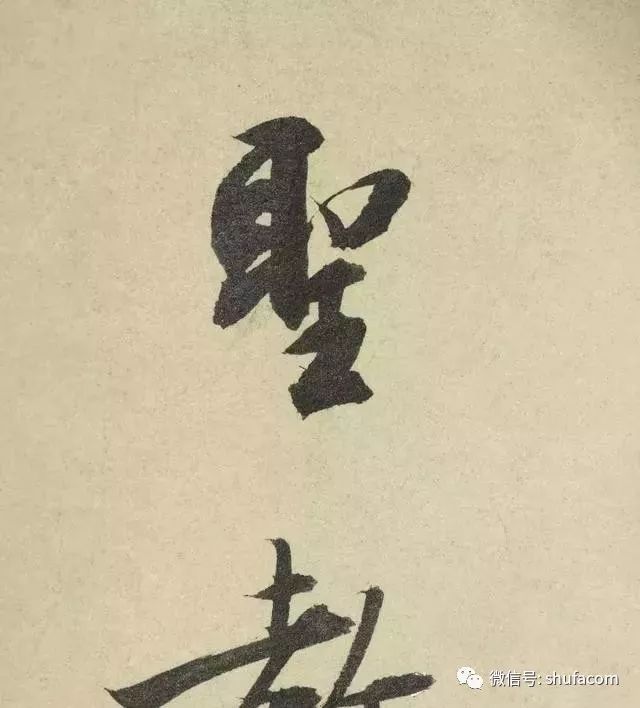 聖
教
微信号: shufacom